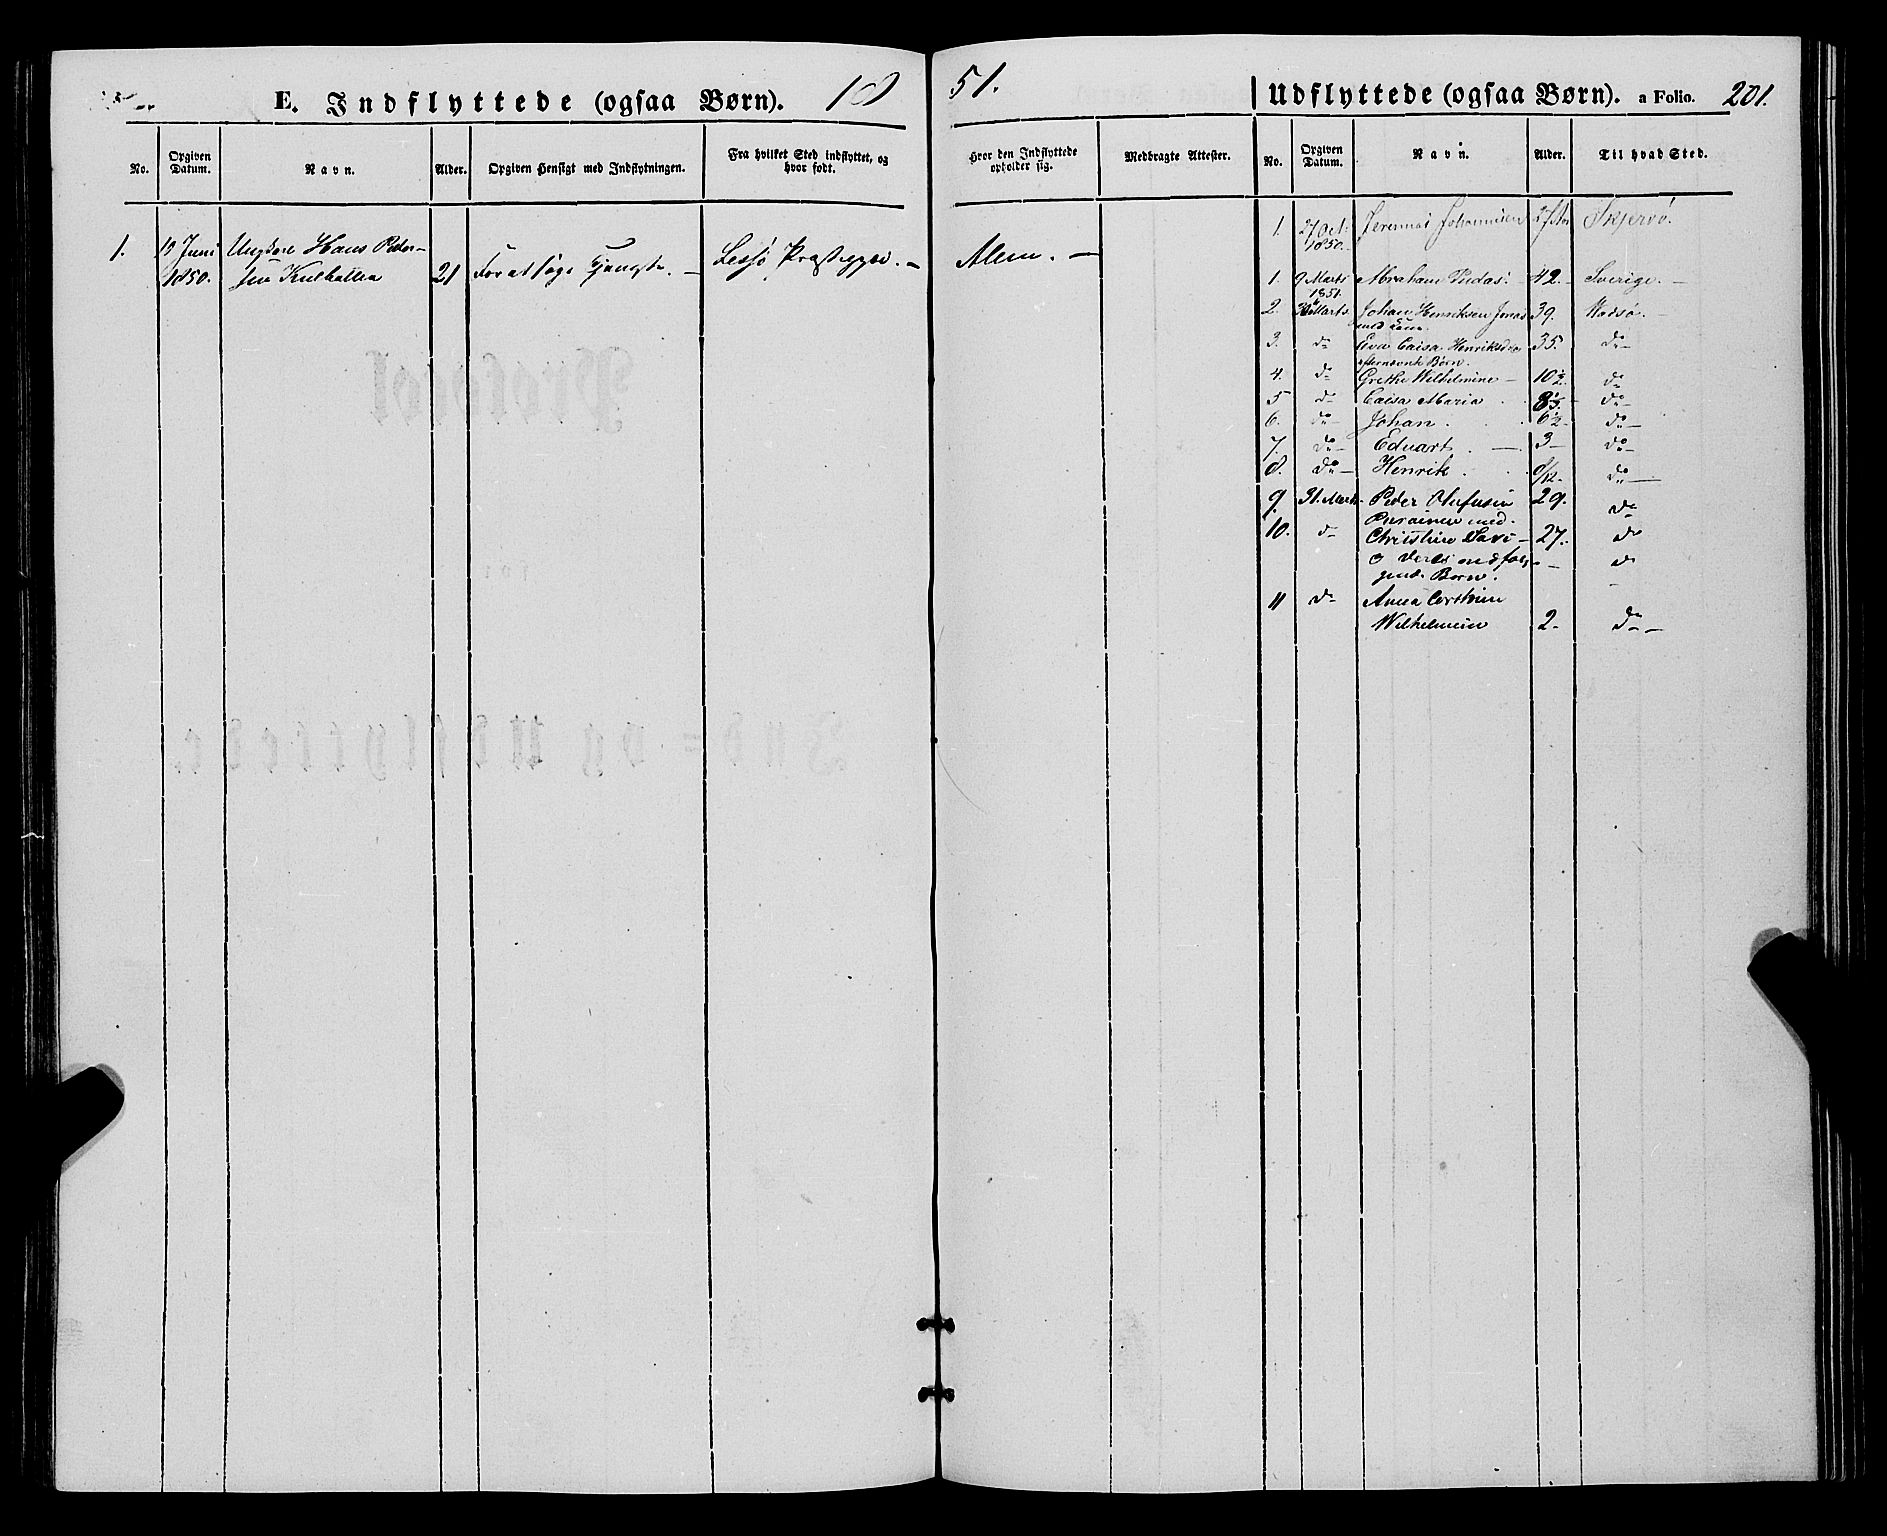 E. Indflyttede (ogsaa Børn). 18
51.
Udflyttede (ogsaa Børn). a Folio. 201.
No. Opgiven Datum. Navn. Alder. Opgiven Hensigt med Indflytningen. Fra hvilket Sted indflyttet, og hvor født.
Hvor den Indflyttede opholder sig. Medbragte Attester.
No. Opgiven Datum. Navn. Alder. Til hvad Sted.
1. 19 Juni Ungkarl Hans Peder-
1850. sen 21 For at søge Tjeneste. — Lessø Præstegjæld. —
Alten. —
1. 27 Oct. 1850. Jeremias Johannesen Skjervø.
1. 9 Marts 1851. Abraham Pudas. 42. Sverige. —
2. 30 Marts Johan Henriksen 39. Wadsø. —
med Kone
3. do Eva Caisa Henriksd. 35. do
efternævnte Børn.
4. do Grethe Wilhelmine — 10½. do
5 do Caisa Maria do
6. do Johan. 6½. do —
7. do Eduart. — 3 — do
8. do — Henrik do —
9. 31. Marts Peder Olufsen 29. do
med
10. do Christine 27. do
o deres medfølg-
ende Børn. do
11 do Anna
Wilhelmine 2. do —